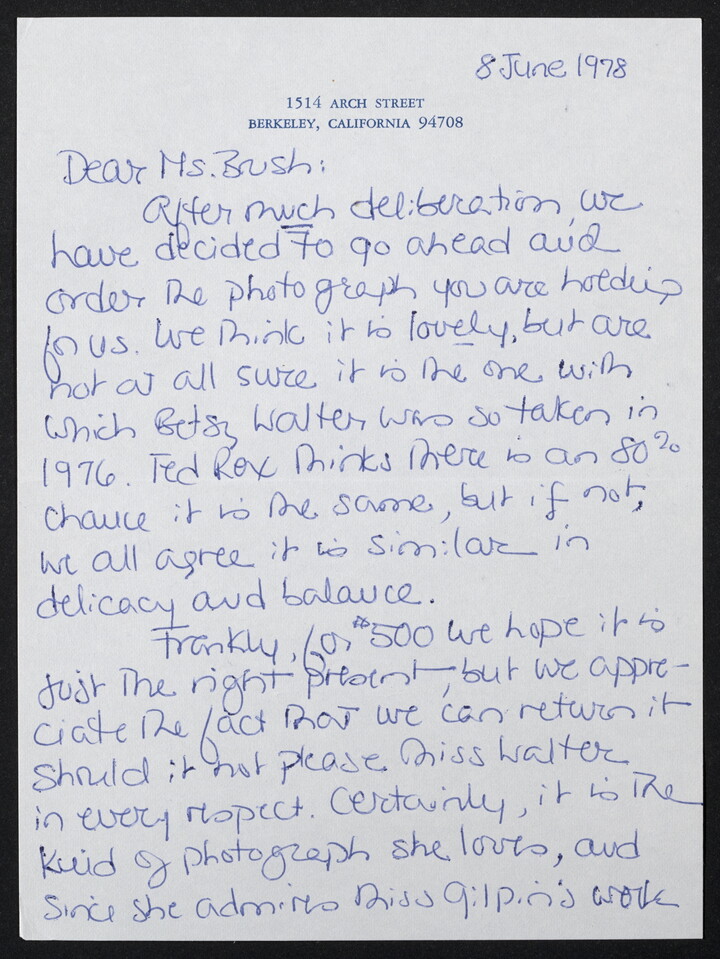 8 June 1978
1514 ARCH STREET
BERKELEY, CALIFORNIA 94708
Dear Ms. Brush:
After much deliberation, we
have decided to go ahead and
order the photograph you are holding
for us. We think it is lovely, but are
not at all sure it is the one with
which Betsy Walter was so taken in
1976. Ted Rex thinks there is an 80%
chance it is the same, but if not,
we all agree it is similar in
delicacy and balance.
Frankly, for $500 we hope it is
just the right present, but we appre-
ciate the fact that we can return it
should it not please Miss Walter
in every respect. Certainly, it is the
kind of photograph she loves, and
since she admires Miss Gilpin's work